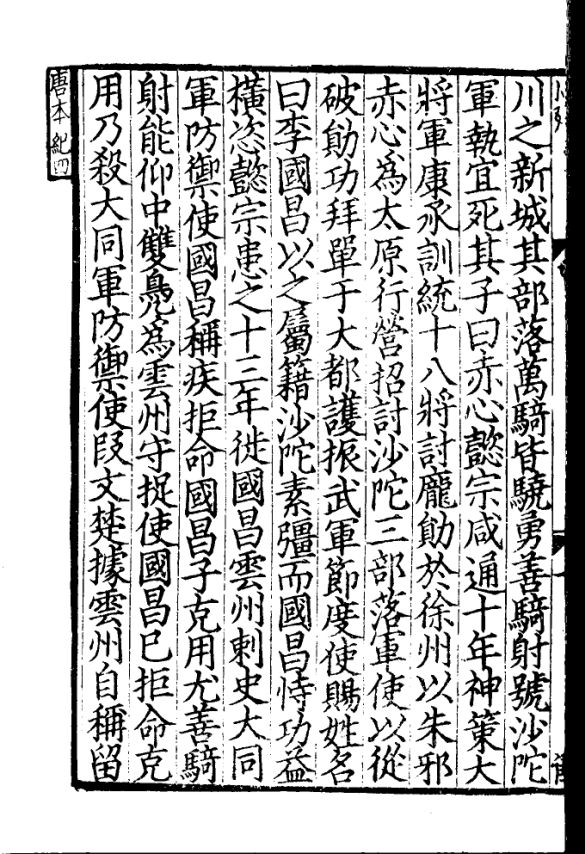 川之新城其部落萬騎皆驍勇善騎射號沙陀
軍執宜死其子曰赤心懿宗咸通十年神策大
將軍康承訓統十八將討龐勛於徐州以朱邪
赤心為太原行營招討沙陀三部落軍使以從
破勛功拜單于大都護振武軍節度使賜姓名
曰李國昌以之屬籍沙陀素彊而國昌恃功益
橫恣懿宗患之十三年徙國昌雲州刺史大同
軍防禦使國昌稱疾拒命國昌子克用尤善騎
射能仰中雙鳧為雲州守捉使國昌已拒命克
用乃殺大同軍防禦使段文楚據雲州自稱留
唐本紀四